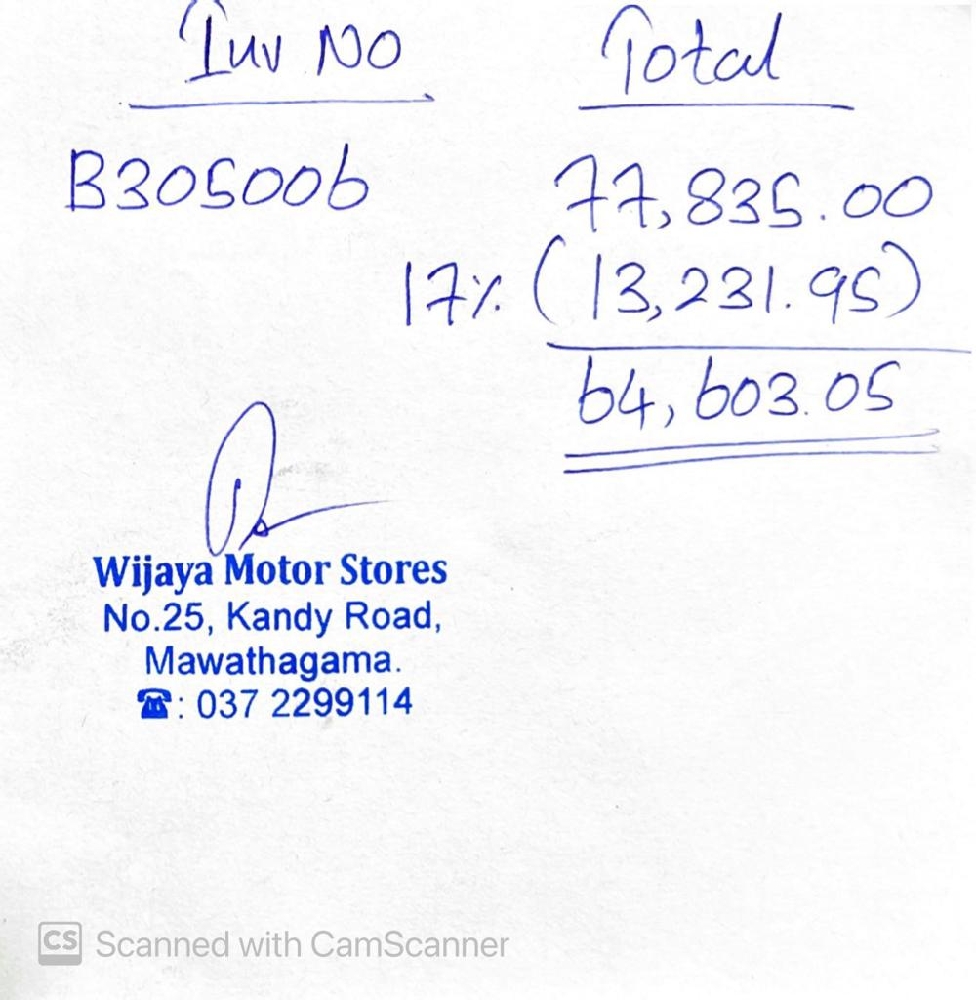 Inv No Total
B305006 77,835.00
17% (13,231.95)
64,603.05
Wijaya Motor Stores
No.25, Kandy Road,
Mawathagama.
☎: 037 2299114
CS Scanned with CamScanner